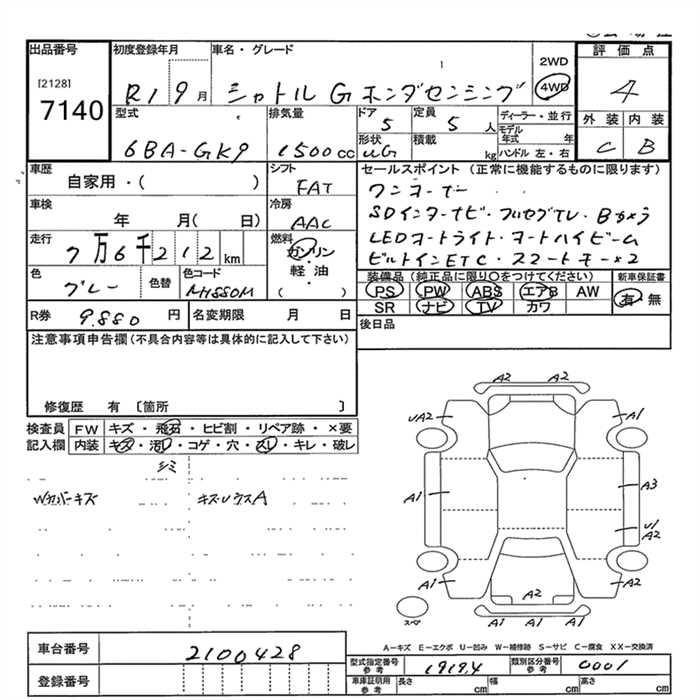 出品番号 初度登録年月 車名・グレード 2WD 評価点
[2128] 7140 R1 9月 シャトル G ホンダセンシング 4WD 4
型式 排気量 ドア 定員 ディーラー・並行 外装 内装
6BA-GK9 1500cc 5 5人 モデル年式 年 C B
形状 積載 kg ハンドル 左・右
UG
車歴 シフト セールスポイント(正常に機能するものに限ります)
自家用・( ) FAT ワンオーナー
車検 冷房 SDインターナビ・フルセグTV・Bカメラ
年 月( 日) AAC LEDオートライト・オートハイビーム
走行 燃料 ビルトインETC・スマートキー×2
7万6千212km ガソリン・軽油・( )
色 色替 色コード 装備品(純正品に限り○をつけてください) 新車保証書
グレー NH880M PS PW ABS エアB AW 有・無
SR ナビ TV カワ
R券 9.880円 名変期限 月 日 後日品
注意事項申告欄(不具合内容等は具体的に記入して下さい)
修復歴 有 〔箇所 〕
検査員 FW キズ・飛石・ヒビ割・リペア跡・×要
記入欄 内装 キズ・汚レ・コゲ・穴・スレ・キレ・破レ
シミ
Wカバーキズ キズUウスA
A2 A2
UA2 A1
A1 A3
U1
A2
A1 A2 A2
スペア A1 A1 A1
A-キズ E-エクボ U-凹み W-補修跡 S-サビ C-腐食 XX-交換済
車台番号 2100428 型式指定番号 参考 19194 類別区分番号 参考 0001
登録番号 車庫証明用 参考 長さ cm 幅 cm 高さ cm